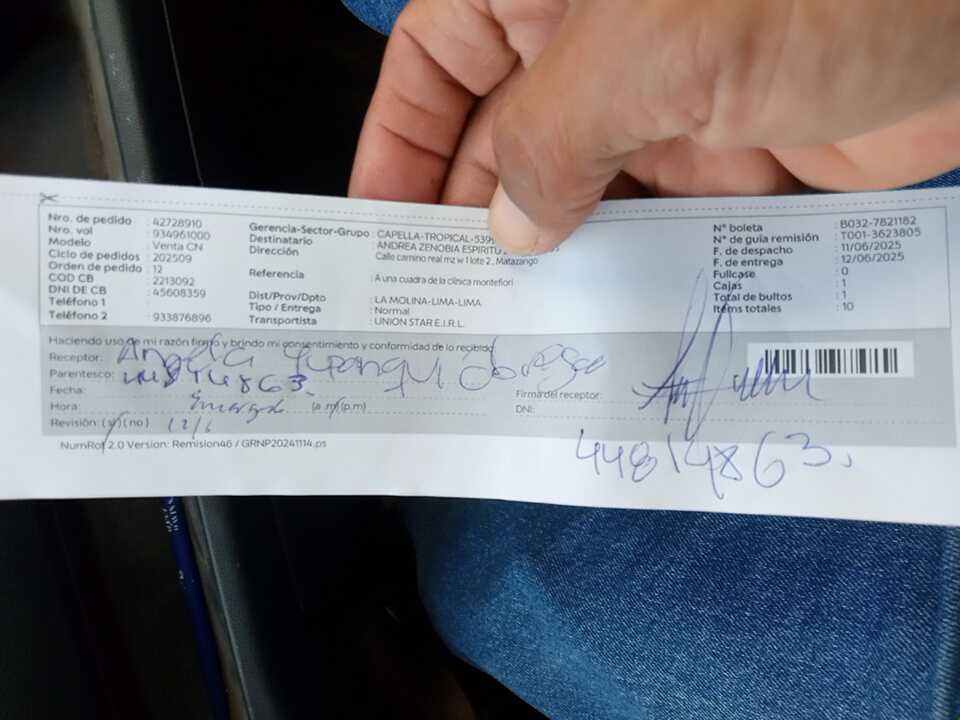 Nro. de pedido : 42728910
Nro. vol : 934961000
Modelo : Venta CN
Ciclo de pedidos : 202509
Orden de pedido : 12
COD CB : 2213092
DNI DE CB : 45608359
Teléfono 1 :
Teléfono 2 : 933876896
Gerencia-Sector-Grupo : CAPELLA-TROPICAL-539
Destinatario : ANDREA ZENOBIA ESPIRITU
Dirección : Calle camino real mz w 1 lote 2 , Matazango
Referencia : A una cuadra de la clinica montefiori
Dist/Prov/Dpto : LA MOLINA-LIMA-LIMA
Tipo / Entrega : Normal
Transportista : UNION STAR E.I.R.L.
N° boleta : B032-7821182
N° de guía remisión : T001-3623805
F. de despacho : 11/06/2025
F. de entrega : 12/06/2025
Fullcase : 0
Cajas : 1
Total de bultos : 1
Items totales : 10
Haciendo uso de mi razón firmo y brindo mi consentimiento y conformidad de lo recibido.
Receptor: Angela
Parentesco: 44814863.
Fecha:
Hora: (a.m)(p.m)
Revisión: (si)(no) 12/6
Firma del receptor:
DNI:
44814863.
NumRot 2.0 Version: Remision46 / GRNP20241114.ps